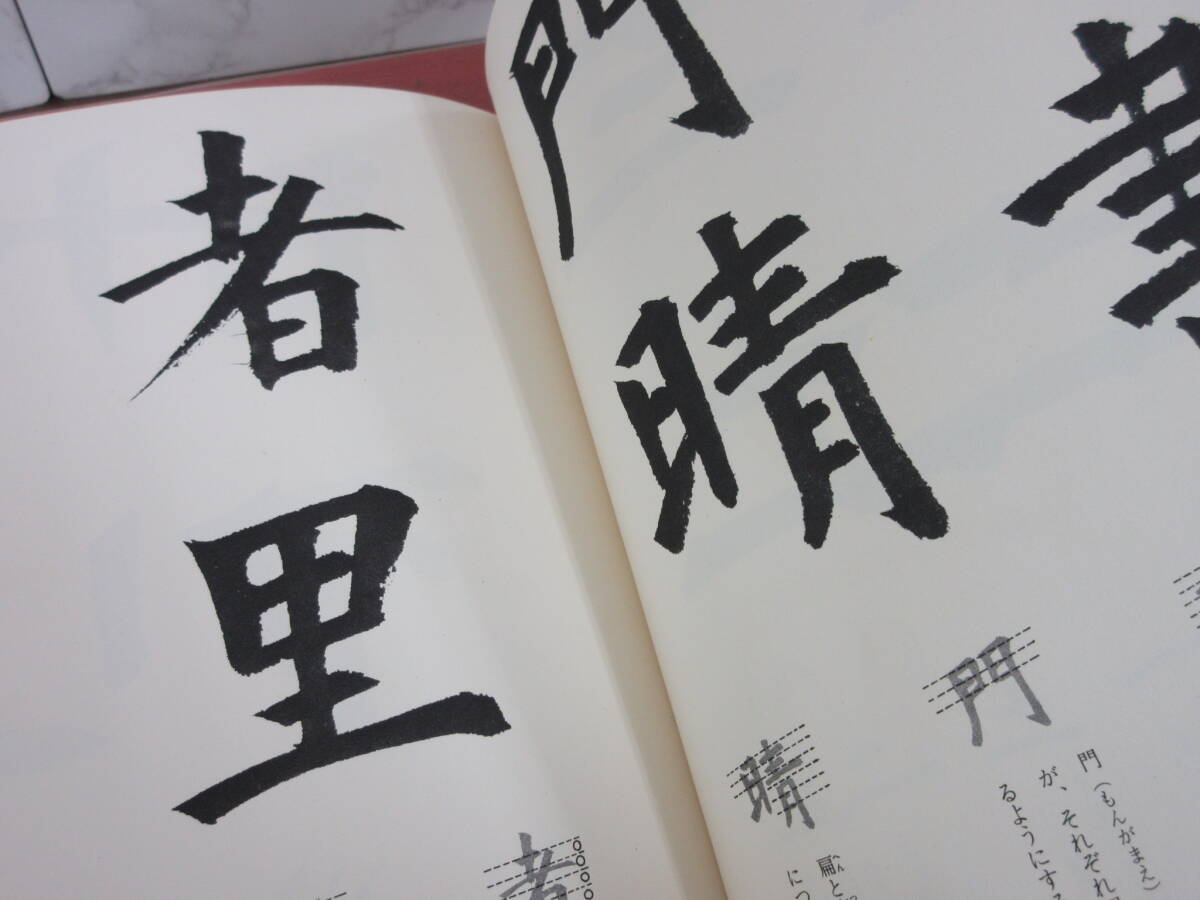 者
里
者
門
晴
門
晴
門（もんがまえ）
が、それぞれ
るようにする
扁と
につ